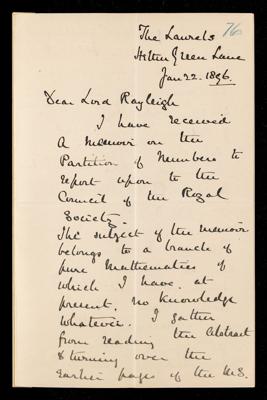 76
The Laurels
Hither Green Lane
Jan 22. 1896.
Dear Lord Rayleigh
I have received
a memoir on the
Partition of Numbers to
report upon to the
Council of the Royal
Society.
The subject of the memoir
belongs to a branch of
pure Mathematics of
which I have, at
present, no knowledge
whatever. I gather
from reading the Abstract
& turning over the
earlier pages of the M.S.